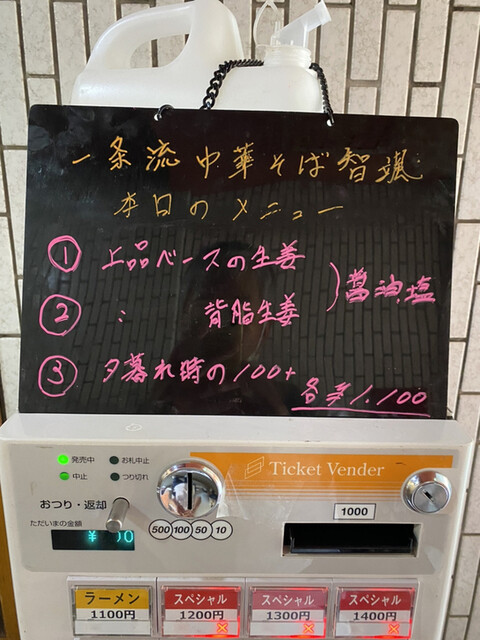 一条流中華そば智颯
本日のメニュー
① 上品ベースの生姜
② 〃 背脂生姜
醤油、塩
③ 夕暮れ時の100+
各¥1,100
発売中 お札中止
中止 つり切れ
Ticket Vender
おつり・返却
ただいまの金額
1000
500 100 50 10
ラーメン
1100円
スペシャル
1200円
スペシャル
1300円
スペシャル
1400円